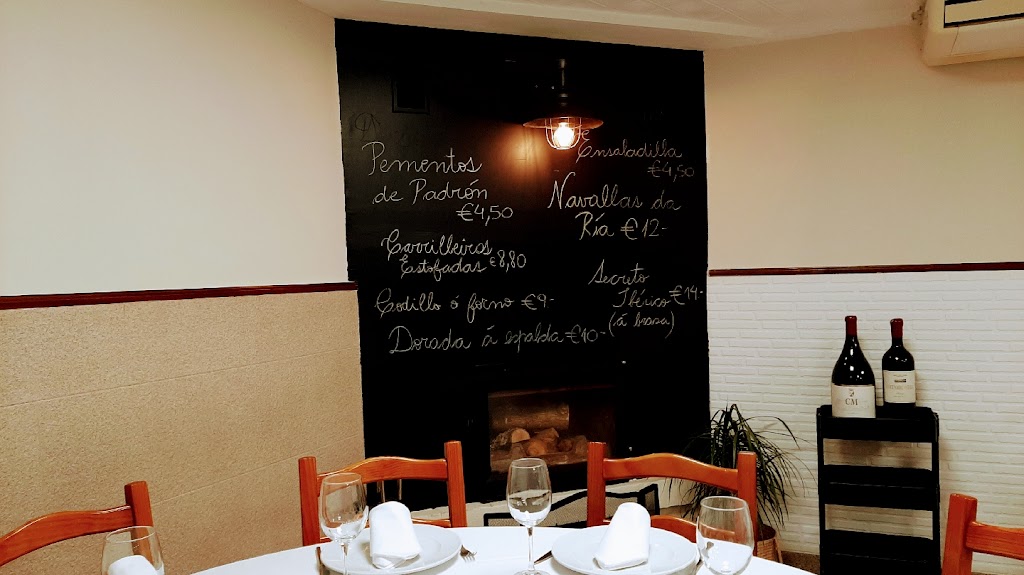 Pementos
de Padrón
€4,50
Carrilleiras
Estofadas €8,80
Codillo ó forno €9-
Dorada á espalda €10-
Ensaladilla
€4,50
Navallas da
Ría €12-
Secreto
Ibérico €14-
(á brasa)
CM